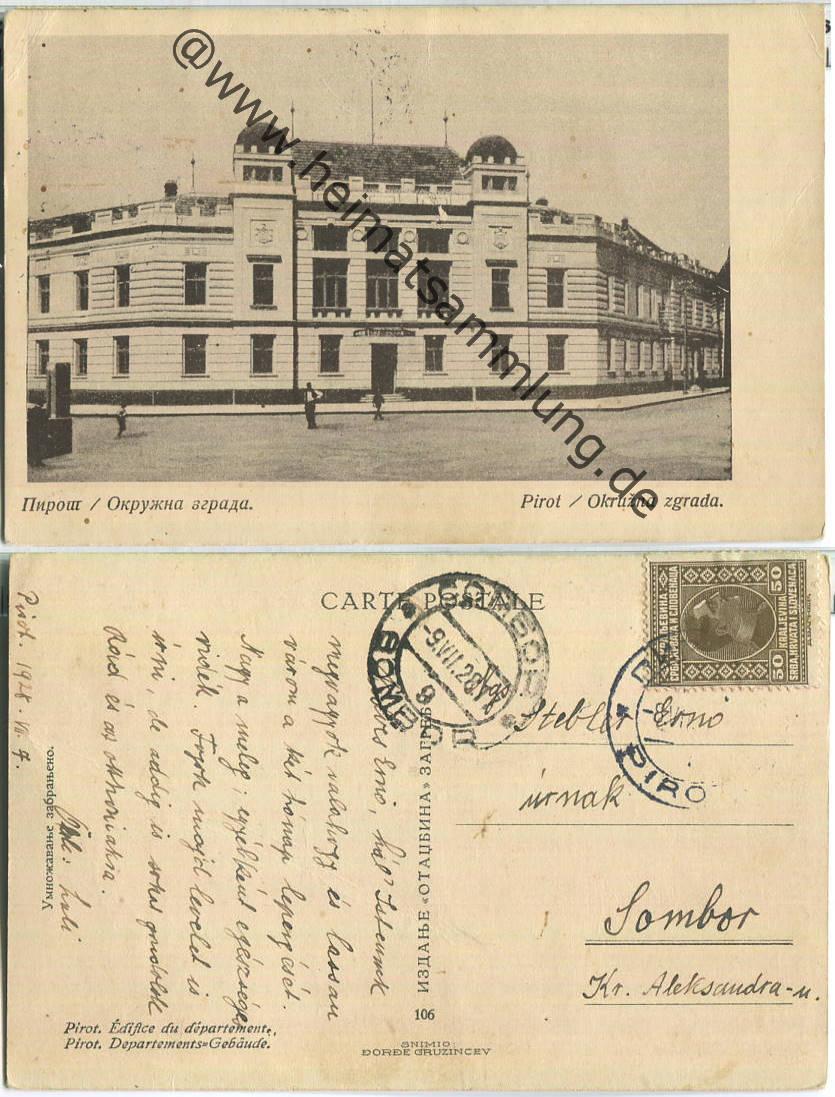 @www.heimatsammlung.de
Пирот / Окружна зграда.
Pirot / Okružna zgrada.
CARTE POSTALE
КРАЉЕВИНА
СРБА, ХРВАТА И СЛОВЕНАЦА
50 50
KRALJEVINA
SRBA, HRVATA I SLOVENACA
СОМБОР
-9.VII.28
SOMBOR
PIRO
Pirot. 1928. VII. 7.
Kedves Ernő, hál' Istennek
megvagyok valahogy és lassan
várom a két hónap lepergését.
Nagy a meleg, egyébként egészséges
vidék. Fogok majd levelet is
írni, de addig is sokat gondolok
Rád és az otthoniakra.
Умножавање забрањено.
ИЗДАЊЕ „ОТАЏБИНА” ЗАГРЕБ
Stebler Ernő
úrnak
Sombor
Kr. Aleksandra-u.
106
Pirot. Édifice du département.
Pirot. Departements=Gebäude.
SNIMIO:
ĐORĐE GRUZINCEV